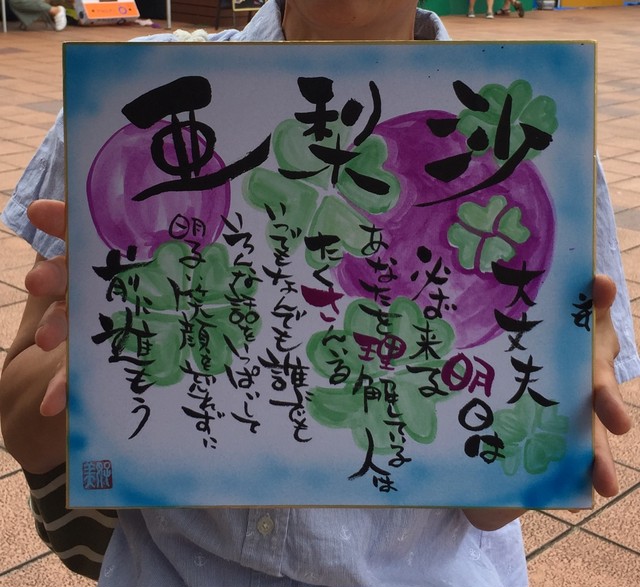 亜梨沙
大丈夫
明日は
必ず来る
あなたを理解している人は
たくさんいる
いつでもなんでも誰でも
いろんな話をいっぱいして
明るい笑顔を忘れずに
前に進もう